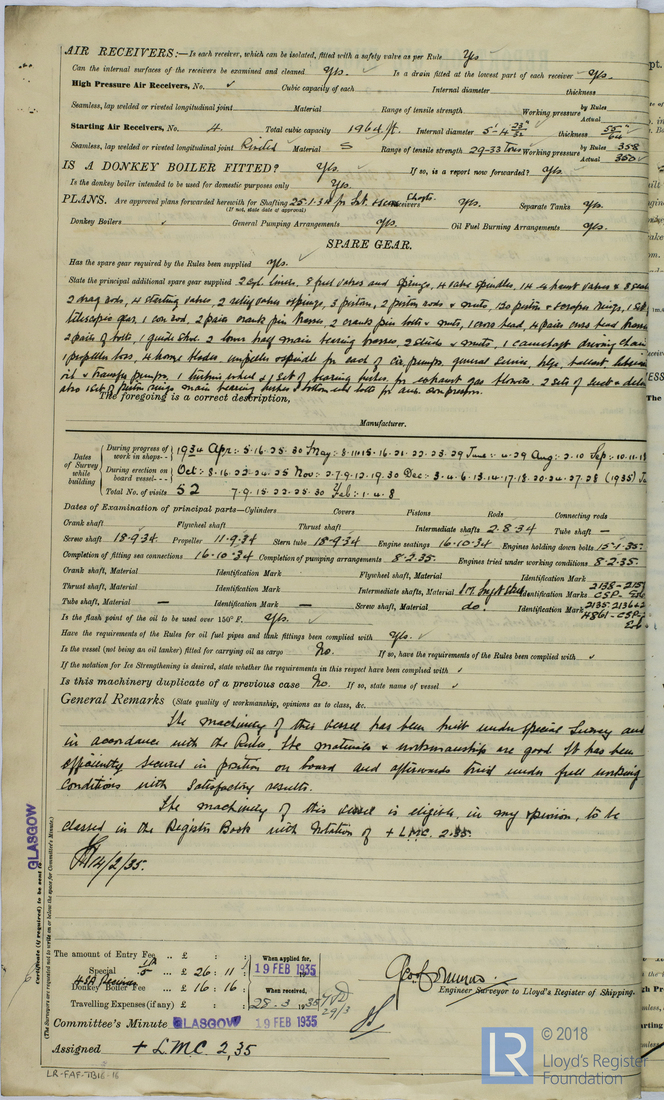 AIR RECEIVERS:—Is each receiver, which can be isolated, fitted with a safety valve as per Rule Yes
Can the internal surfaces of the receivers be examined and cleaned Yes. Is a drain fitted at the lowest part of each receiver Yes.
High Pressure Air Receivers, No. Cubic capacity of each Internal diameter thickness
Seamless, lap welded or riveted longitudinal joint Material Range of tensile strength Working pressure by Rules Actual
Starting Air Receivers, No. 4 Total cubic capacity 196 c.ft. Internal diameter 5'-4 23/32" thickness 55/64"
Seamless, lap welded or riveted longitudinal joint Riveted Material S Range of tensile strength 29-33 Tons Working pressure by Rules 358 Actual 350
IS A DONKEY BOILER FITTED? Yes. If so, is a report now forwarded? Yes.
Is the donkey boiler intended to be used for domestic purposes only Yes.
PLANS. Are approved plans forwarded herewith for Shafting 25.1.34 for Int. & Screw Shafts. Receivers Yes. Separate Tanks Yes.
(If not, state date of approval)
Donkey Boilers General Pumping Arrangements Yes. Oil Fuel Burning Arrangements Yes.
SPARE GEAR.
Has the spare gear required by the Rules been supplied Yes.
State the principal additional spare gear supplied 2 cyl. liners, 8 fuel valves and springs, 4 valve spindles, 14 exhaust valves & 8 seats
2 drag rods, 4 starting valves, 2 relief valves & springs, 3 piston, 2 piston rods & nuts, 130 piston & scraper rings, 1 set
telescopic gear, 1 con rod, 2 pairs crank pin brasses, 2 crank pin bolts & nuts, 1 cross head, 4 pairs cross head brasses
2 pairs of bolts, 1 guide shoe 2 lower half main bearing brasses, 2 studs & nuts, 1 camshaft driving chain
1 propeller boss, 4 bronze blades impeller & spindle for each of cir. pumps, general service, bilge, ballast lubricating
oil & transfer pumps, 1 turbine wheel & 1 set of bearing bushes for exhaust gas blowers, 2 sets of suct & deliv
also 1 set of piston rings main bearing bushes & bottom end bolts for aux. compressor.
The foregoing is a correct description,
Manufacturer.
Dates of Survey while building
During progress of work in shops-- 1934 Apr: 5.16.25.30 May: 8.11.15.16.21.22.23.29 June: 4.29 Aug: 2.10 Sep: 10.11.18
During erection on board vessel--- Oct: 8.16.22.24.25 Nov: 2.7.9.12.19.30 Dec: 3.4.6.13.14.17.18.20.24.27.28 (1935) Ja
Total No. of visits 52 7.9.15.22.25.30 Feb: 1.4.8
Dates of Examination of principal parts—Cylinders Covers Pistons Rods Connecting rods
Crank shaft Flywheel shaft Thrust shaft Intermediate shafts 2.8.34 Tube shaft —
Screw shaft 18.9.34 Propeller 11.9.34 Stern tube 18.9.34 Engine seatings 16.10.34 Engines holding down bolts 15.1.35.
Completion of fitting sea connections 16.10.34 Completion of pumping arrangements 8.2.35. Engines tried under working conditions 8.2.35.
Crank shaft, Material Identification Mark Flywheel shaft, Material Identification Mark
Thrust shaft, Material Identification Mark Intermediate shafts, Material Identification Marks
Tube shaft, Material — Identification Mark — Screw shaft, Material do. Identification Mark
Is the flash point of the oil to be used over 150° F. Yes.
Have the requirements of the Rules for oil fuel pipes and tank fittings been complied with Yes.
Is the vessel (not being an oil tanker) fitted for carrying oil as cargo No. If so, have the requirements of the Rules been complied with
If the notation for Ice Strengthening is desired, state whether the requirements in this respect have been complied with
Is this machinery duplicate of a previous case No. If so, state name of vessel
General Remarks (State quality of workmanship, opinions as to class, &c.
The machinery of this vessel has been built under special Survey and
in accordance with the Rules. The materials & workmanship are good. It has been
efficiently secured in position on board and afterwards tried under full working
conditions with satisfactory results.
The machinery of this vessel is eligible, in my opinion, to be
classed in the Register Book with Notation of + LMC. 2.35.
14/2/35.
GLASGOW
Certificate (if required) to be sent to
(The Surveyors are requested not to write on or below the space for Committee's Minute.)
The amount of Entry Fee .. £ : : When applied for,
Special ... £ 26 : 11 : 19 FEB 1935
Donkey Boiler Fee ... £ 16 : 16 : When received,
Travelling Expenses (if any) £ : : 28.3.1935 29/3
Engineer Surveyor to Lloyd's Register of Shipping.
Committee's Minute GLASGOW 19 FEB 1935
Assigned + LMC. 2,35
LR-FAF-TB16-16
LR © 2018
Lloyd's Register
Foundation